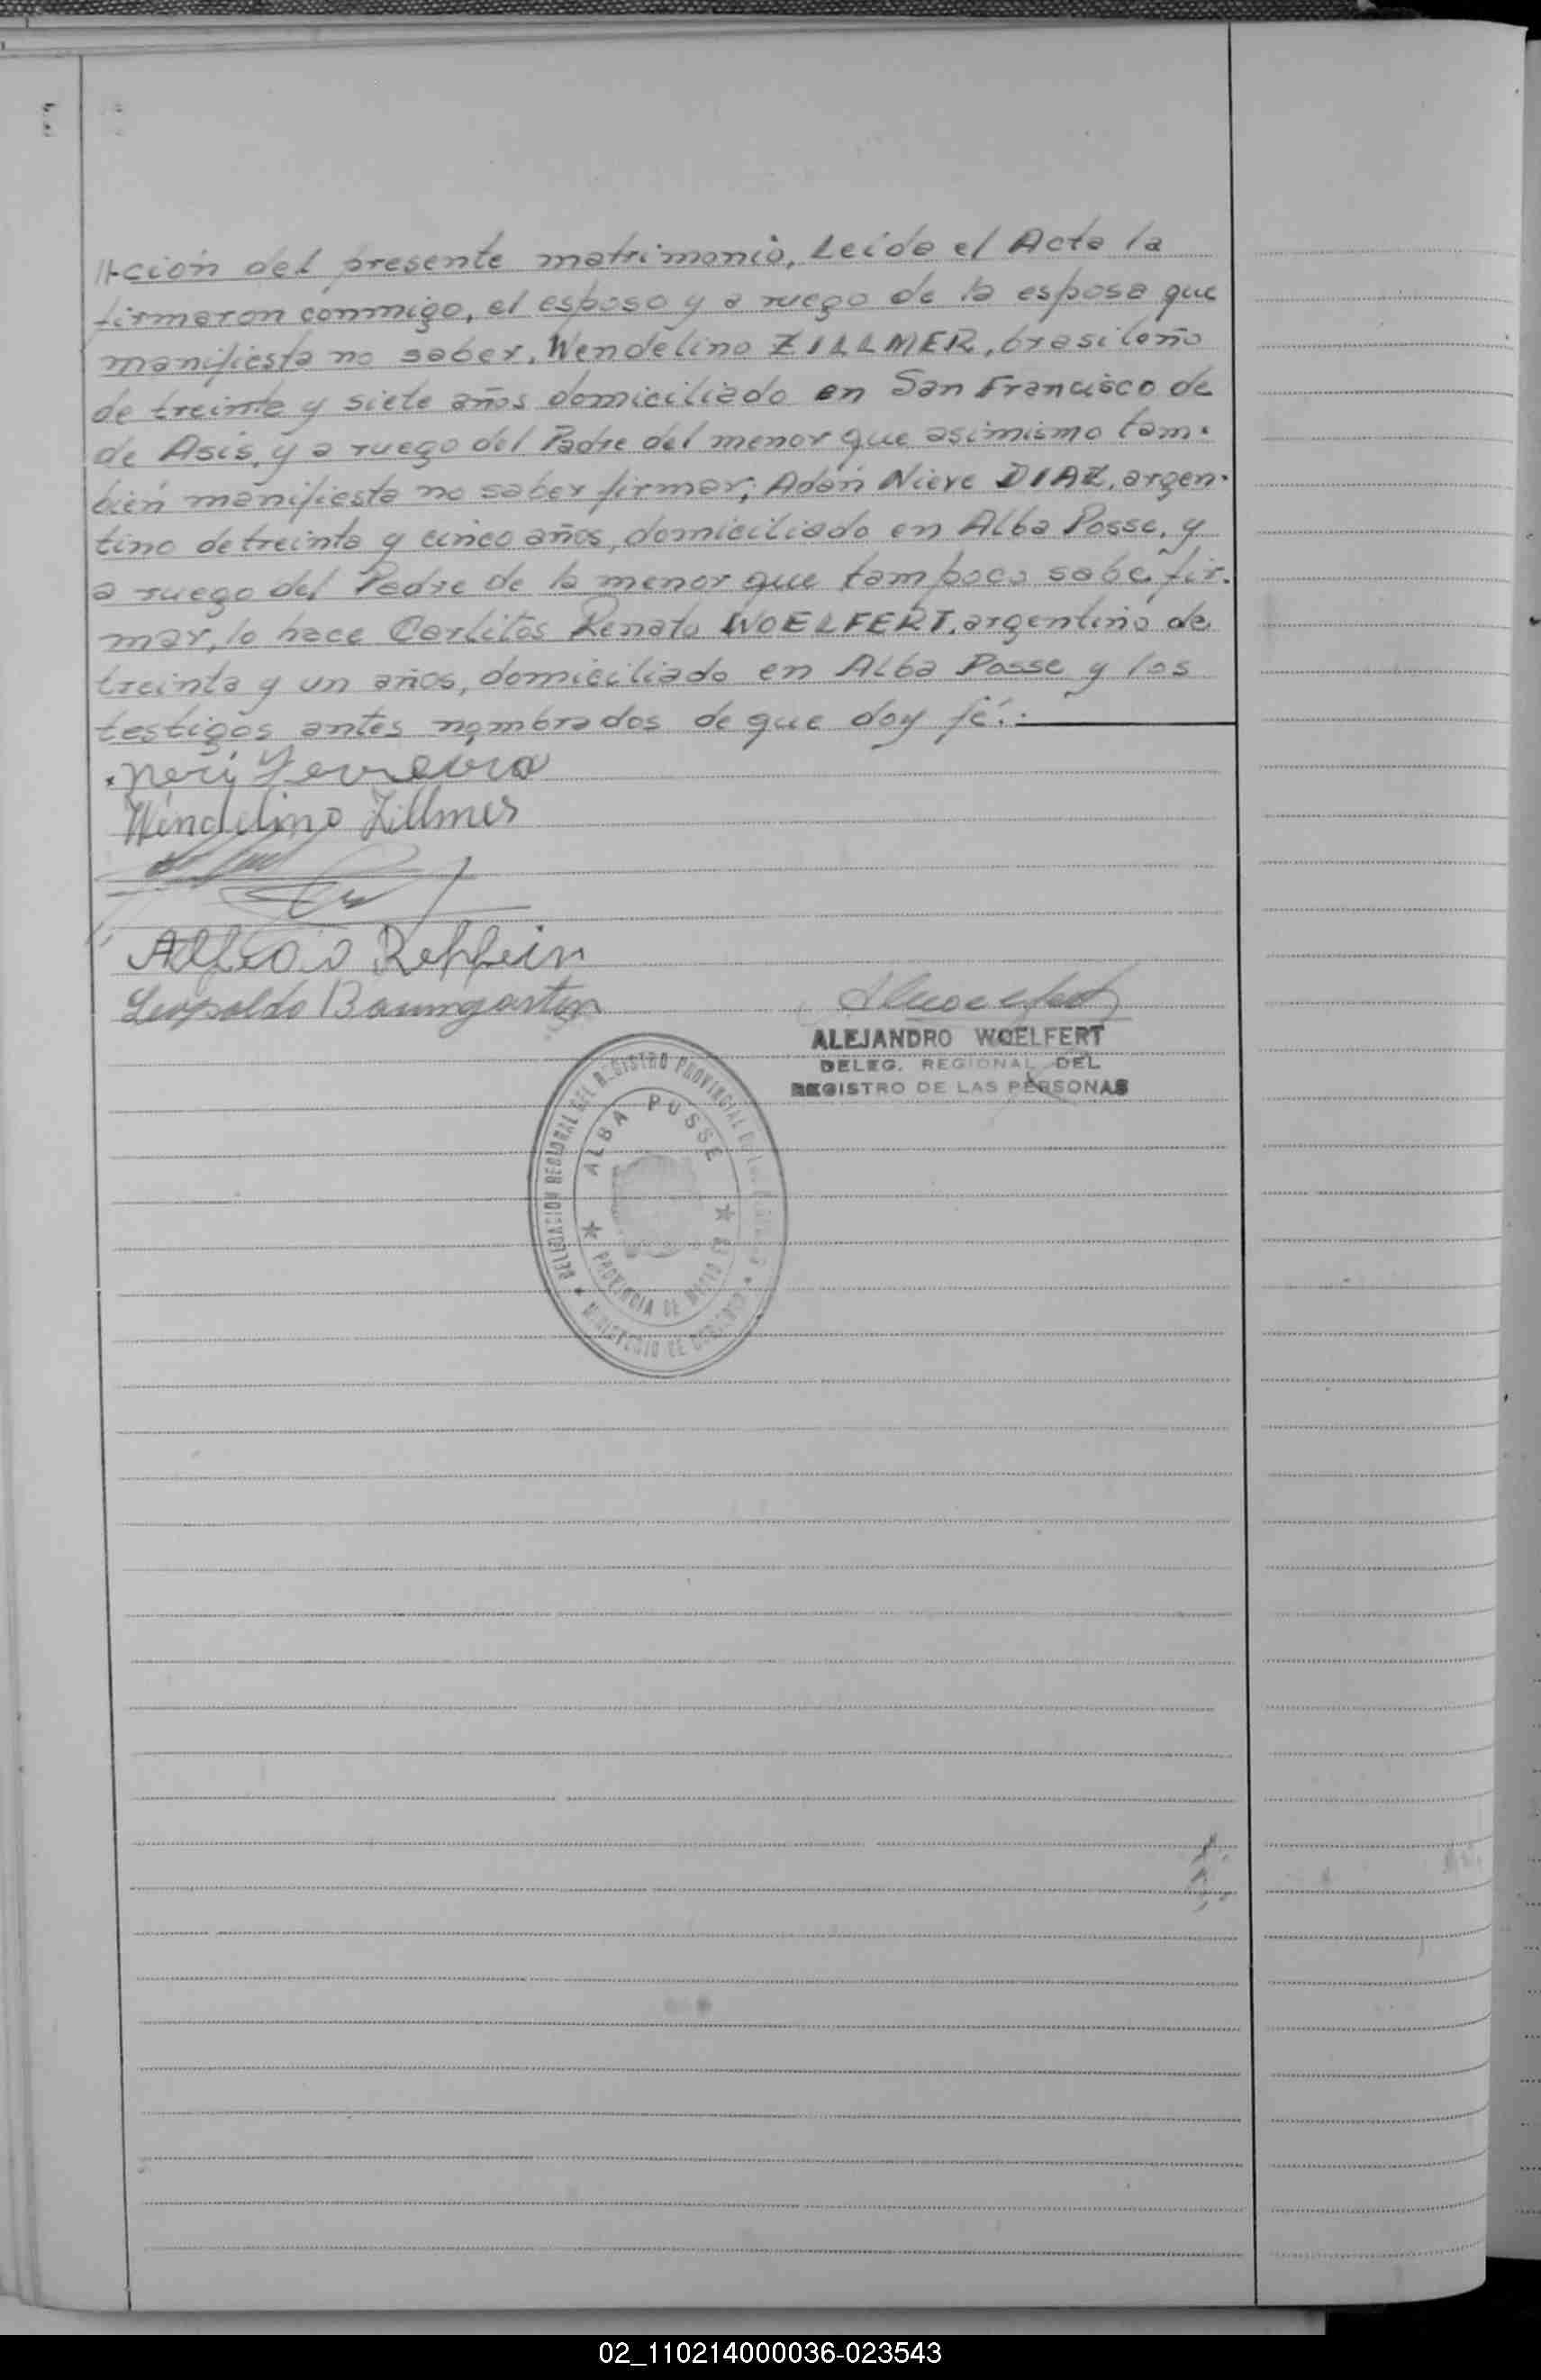 //-ción del presente matrimonio, Leída el Acta la
firmaron conmigo, el esposo y a ruego de la esposa que
manifiesta no saber, Wendelino ZILLMER, brasileño
de treinta y siete años domiciliado en San Francisco de
de Asis, y a ruego del Padre del menor que asimismo tam-
bién manifiesta no saber firmar, Adán Nieve DIAZ, argen-
tino de treinta y cinco años, domiciliado en Alba Posse, y
a ruego del Padre de la menor que tampoco sabe fir-
mar, lo hace Carlitos Renato WOELFERT, argentino de
treinta y un años, domiciliado en Alba Posse y los
testigos antes nombrados de que doy fé.-
Neri Ferreira
Wendelino Zillmer
Alfredo Rehfein
Leopoldo Baumgarten
ALEJANDRO WOELFERT
DELEG. REGIONAL DEL
REGISTRO DE LAS PERSONAS
DELEGACION REGIONAL DEL REGISTRO PROVINCIAL DE LAS
ALBA POSSE
PROVINCIA DE
MINISTERIO DE GOBIERNO
02_110214000036-023543